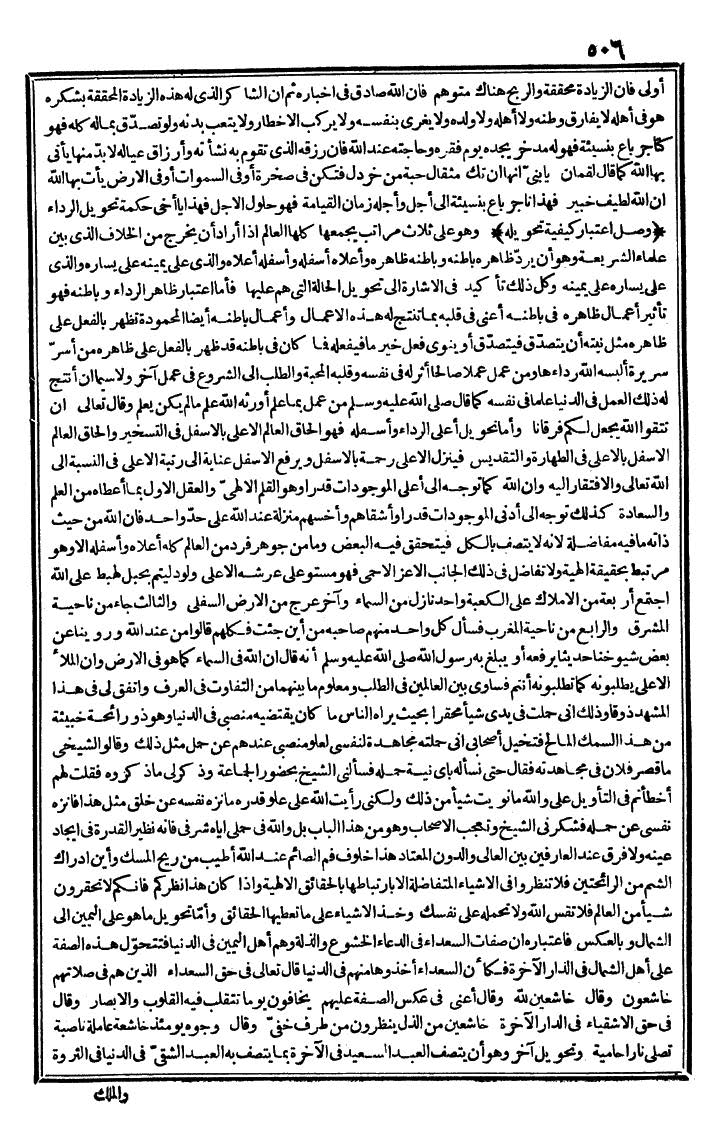 ٥٠٦
أولى فان الزيادة محققة والربح هناك متوهم فان الله صادق فى اخباره ثم ان الشاكر الذى له هذه الزيادة المحققة بشكره
هو فى أهله لا يفارق وطنه ولا أهله ولا ولده ولا يغرى بنفسه ولا يركب الاخطار ولا يتعب بدنه ولو تصدّق بماله كله فهو
كتاجر باع بنسيئة فهو له مدخر يجده يوم فقره وحاجته عند الله فان رزقه الذى تقوم به نشأته وأرزاق عياله لا بدّ منها يأتى
بها الله كما قال لقمان يابنىّ انها ان تك مثقال حبة من خردل فتكن فى صخرة أو فى السموات أو فى الارض يأت بها الله
ان الله لطيف خبير فهذا تاجر باع بنسيئة الى أجل وأجله زمان القيامة فهو حلول الاجل فهذا يا أخى حكمة تحويل الرداء
﴿وصل اعتبار كيفية تحويله﴾ وهو على ثلاث مراتب يجمعها كلها العالم اذا أراد أن يخرج من الخلاف الذى بين
علماء الشريعة وهو أن يردّ ظاهره باطنه وباطنه ظاهره وأعلاه أسفله وأسفله أعلاه والذى على يمينه على يساره والذى
على يساره على يمينه وكل ذلك تأكيد فى الاشارة الى تحويل الحالة التى هم عليها فأما اعتبار ظاهر الرداء وباطنه فهو
تأثير أعمال ظاهره فى باطنه أعنى فى قلبه بما تنتج له هذه الاعمال وأعمال باطنه أيضا المحمودة تظهر بالفعل على
ظاهره مثل نيته أن يتصدّق فيتصدّق أو ينوى فعل خير ما فيفعله فما كان فى باطنه قد ظهر بالفعل على ظاهره من أسرّ
سريرة ألبسه الله رداءها ومن عمل عملا صالحا أثر له فى نفسه وقلبه المحبة والطلب الى الشروع فى عمل آخر ولا سيما ان أنتج
له ذلك العمل فى الدنيا علما فى نفسه كما قال صلى الله عليه وسلم من عمل بما علم أورثه الله علم ما لم يكن يعلم وقال تعالى ان
تتقوا الله يجعل لكم فرقانا وأما تحويل أعلى الرداء وأسفله فهو الحاق العالم الاعلى بالاسفل فى التسخير والحاق العالم
الاسفل بالاعلى فى الطهارة والتقديس فينزل الاعلى رحمة بالاسفل ويرفع الاسفل عناية الى رتبة الاعلى فى النسبة الى
الله تعالى والافتقار اليه وان الله كما توجه الى أعلى الموجودات قدرا وهو القلم الالهىّ والعقل الاول بما أعطاه من العلم
والسعادة كذلك توجه الى أدنى الموجودات قدرا وأشقاهم وأخسهم منزلة عند الله على حدّ واحد فان الله من حيث
ذاته ما فيه مفاضلة لانه لا يتصف بالكل فيتحقق فيه البعض وما من جوهر فرد من العالم كله أعلاه وأسفله الا وهو
مرتبط بحقيقة الهية ولا تفاضل فى ذلك الجانب الاعز الاحمى فهو مستو على عرشه الاعلى ولو دليتم بحبل لهبط على الله
اجتمع أربعة من الاملاك على الكعبة واحد نازل من السماء وآخر عرج من الارض السفلى والثالث جاء من ناحية
المشرق والرابع من ناحية المغرب فسأل كل واحد منهم صاحبه من أين جئت فكلهم قالوا من عند الله وروينا عن
بعض شيوخنا حديثا يرفعه أو يبلغ به رسول الله صلى الله عليه وسلم أنه قال ان الله فى السماء كما هو فى الارض وان الملأ
الاعلى يطلبونه كما تطلبونه أنتم فساوى بين العالمين فى الطلب ومعلوم ما بينهما من التفاوت فى العرف واتفق لى فى هذا
المشهد ذوقا وذلك انى حملت فى يدى شيأ محقرا بحيث يراه الناس ما كان يقتضيه منصبى فى الدنيا وهو ذو رائحة خبيثة
من هذا السمك المالح فتخيل أصحابى انى حملته مجاهدة لنفسى لعلو منصبى عندهم عن حمل مثل ذلك وقالوا لشيخى
ما قصر فلان فى مجاهدته فقال حتى نسأله باى نية حمله فسألنى الشيخ بحضور الجماعة وذكر لى ما ذكروه فقلت لهم
أخطأتم فى التأويل على والله ما نويت شيأ من ذلك ولكنى رأيت الله على علو قدره ما نزه نفسه عن خلق مثل هذا فانزه
نفسى عن حمله فشكرنى الشيخ وتعجب الاصحاب وهو من هذا الباب بل والله فى حملى اياه شرفى فانه نظير القدرة فى ايجاد
عينه ولا فرق عند العارفين بين العالى والدون المعتاد هذا خلوف فم الصائم عند الله أطيب من ريح المسك وأين ادراك
الشم من الرائحتين فلا تنظروا فى الاشياء المتفاضلة الا بارتباطها بالحقائق الالهية واذا كان هذا نظركم فانكم لا تحقرون
شيأ من العالم فلا تقس الله ولا تحمله على نفسك وخذ الاشياء على ما تعطيها الحقائق وأما تحويل ما هو على اليمين الى
الشمال وبالعكس فاعتباره ان صفات السعداء فى الدعاء الخشوع والذلة وهم أهل اليمين فى الدنيا فتتحوّل هذه الصفة
على أهل الشمال فى الدار الآخرة فكأن السعداء أخذوها منهم فى الدنيا قال تعالى فى حق السعداء الذين هم فى صلاتهم
خاشعون وقال خاشعين لله وقال أعنى فى عكس الصفة عليهم يخافون يوما تتقلب فيه القلوب والابصار وقال
فى حق الاشقياء فى الدار الآخرة خاشعين من الذل ينظرون من طرف خفىّ وقال وجوه يومئذ خاشعة عاملة ناصبة
تصلى نارا حامية وتحويل آخر وهو أن يتصف العبد السعيد فى الآخرة بما يتصف به العبد الشقىّ فى الدنيا فى الثروة
والملك